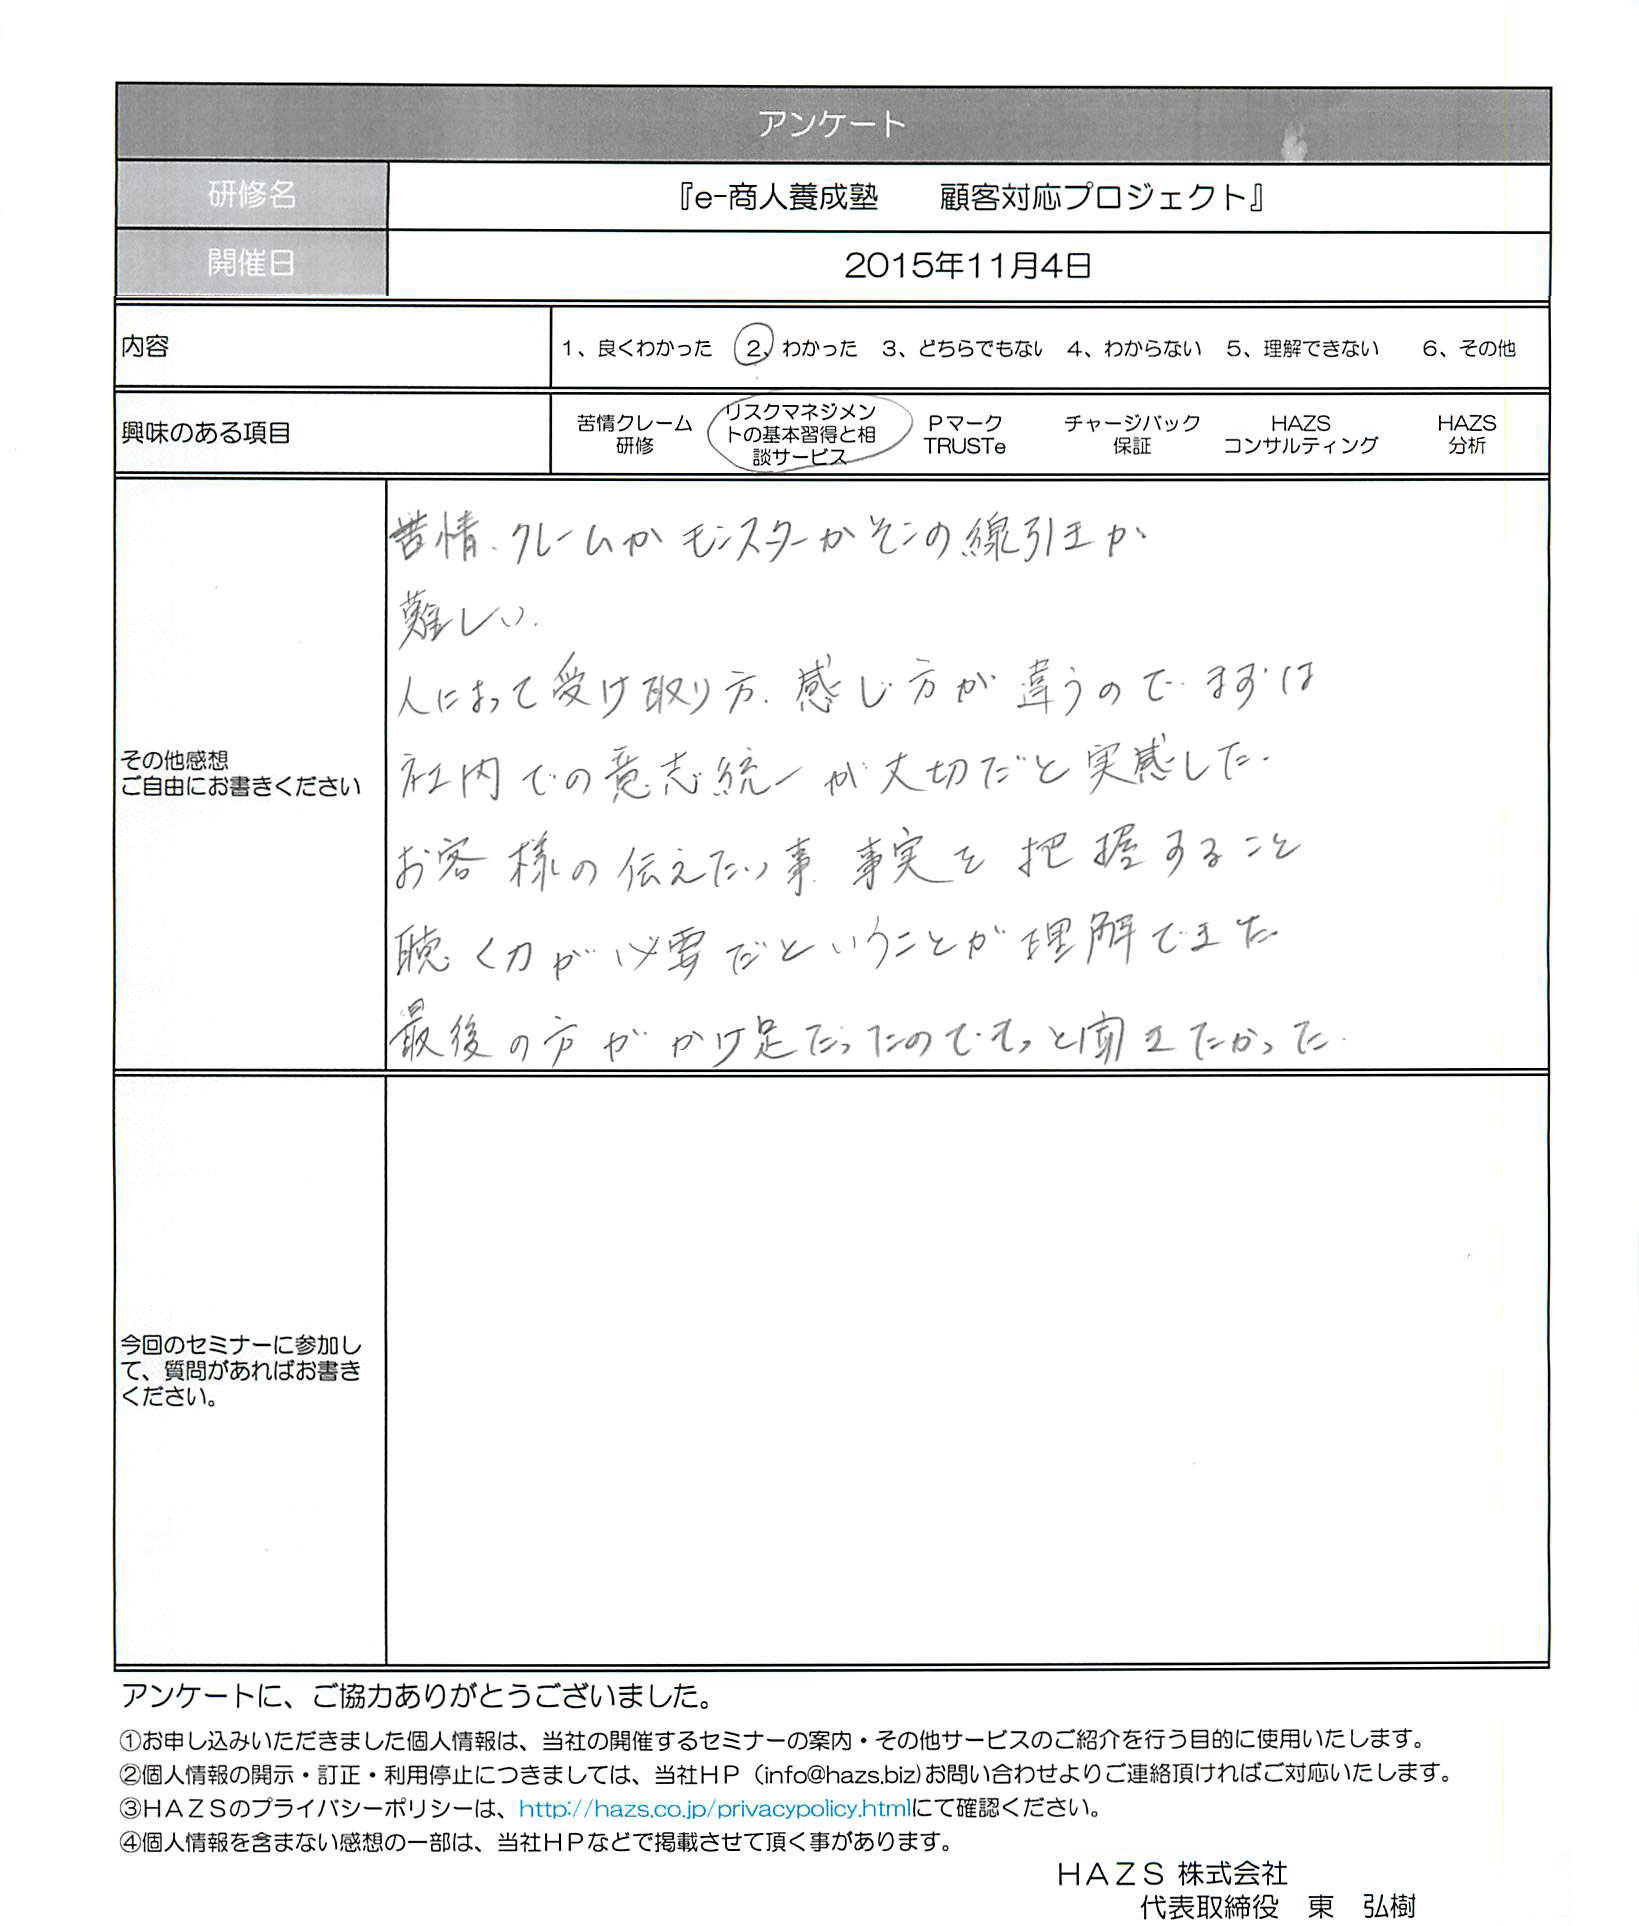 アンケート
研修名
『e-商人養成塾　　顧客対応プロジェクト』
開催日
2015年11月4日
内容
1、良くわかった　2、わかった　3、どちらでもない　4、わからない　5、理解できない　6、その他
興味のある項目
苦情クレーム
研修
リスクマネジメン
トの基本習得と相
談サービス
Pマーク
TRUSTe
チャージバック
保証
HAZS
コンサルティング
HAZS
分析
その他感想
ご自由にお書きください
苦情、クレームか モンスターかそこの線引きが
難しい。
人によって受け取り方、感じ方が違うので、まずは
社内での意志統一が大切だと実感した。
お客様の伝えたい事、事実を把握すること
聴く力が必要だということが理解できた
最後の方がかけ足だったのでもっと聞きたかった。
今回のセミナーに参加し
て、質問があればお書き
ください。
アンケートに、ご協力ありがとうございました。
①お申し込みいただきました個人情報は、当社の開催するセミナーの案内・その他サービスのご紹介を行う目的に使用いたします。
②個人情報の開示・訂正・利用停止につきましては、当社ＨＰ（info@hazs.biz)お問い合わせよりご連絡頂ければご対応いたします。
③ＨＡＺＳのプライバシーポリシーは、http://hazs.co.jp/privacypolicy.htmlにて確認ください。
④個人情報を含まない感想の一部は、当社ＨＰなどで掲載させて頂く事があります。
ＨＡＺＳ 株式会社
代表取締役　東　弘樹